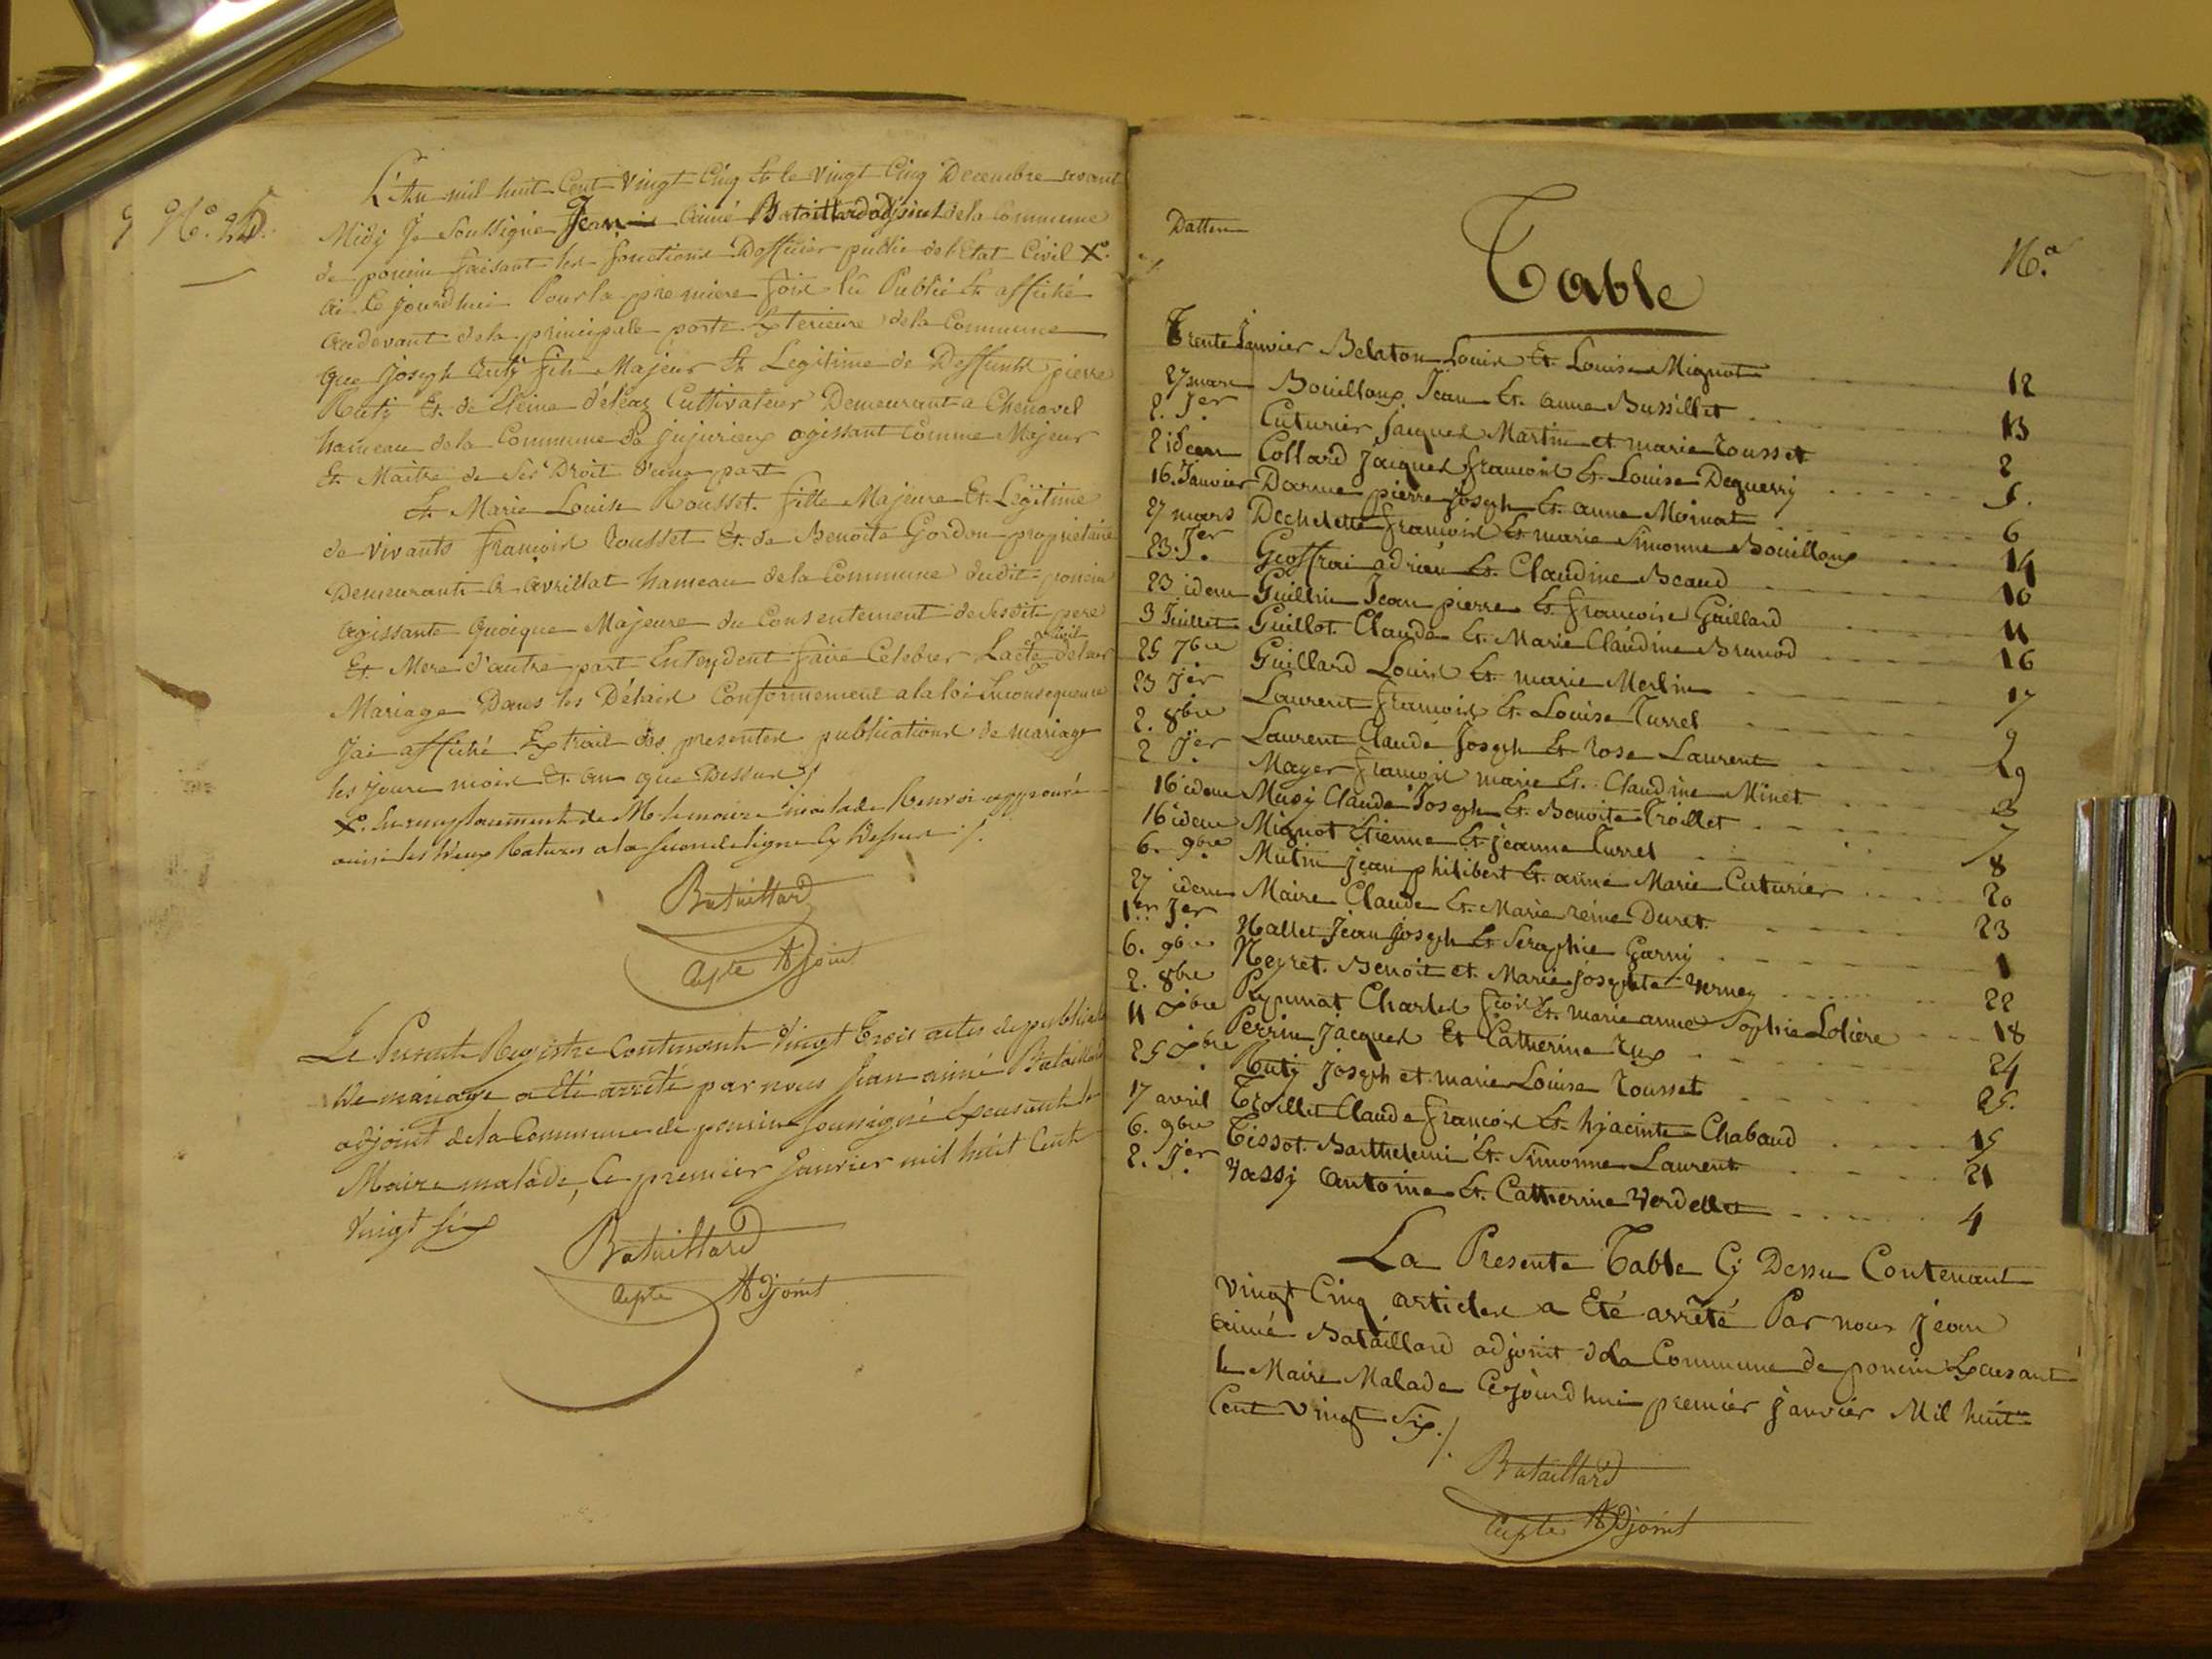 N.o 25.
L'An mil huit Cent Vingt Cinq Et le Vingt Cinq Decembre avant
Midy Je Soussigné Jean Aimé Bataillard adjoint de la Commune
de poncin faisant les fonctions D'officier public de l'Etat Civil X.
ai Ce jourdhui Pour la premiere fois lu Publié Et affiché
audevant de la principale porte Exterieure de la Commune
Que Joseph Ruty fils Majeur Et Legitime de Deffunt pierre
Ruty Et de Cultivateur Demeurant a Chenavel
hameau de la Commune de jujurieux agissant comme Majeur
Et Maitre de Ses Droit d'une part
Et Marie Louise Rousset fille Majeure Et Legitime
de vivants francois Rousset Et de Benoite Gordon propriétaire
Demeurants a avrillat hameau de la Commune dudit poncin
agissante Quoique Majeure du Consentement de Sesdit pere
Et Mere d'autre part Entendent faire Celebrer Lacte Civil de leur
Mariage Dans les Délais Conformement a la loi Enconsequence
Jai affiché Extrait des presentes publications de mariage
les jours mois Et an que Dessus /
X. En remplacement de M. le maire malade Renvoi approuvé
ainsi les deux Ratures a la seconde ligne cy dessus /.
Bataillard
Adjoint
Le Present Registre Contenant Vingt Trois actes de publication
de mariage a Eté arrêté par nous Jean aimé Bataillard
adjoint de la Commune de poncin Soussigné Excusant le
Maire malade, Ce premier Janvier mil huit Cent
Vingt Six
Bataillard
Adjoint
Dattes
Table
N.o
Trente Janvier Belaton Louis Et Louise Mignot 12
27 mars Bouilloux Jean Et anne Bussillet 13
2. Jer. Cuturier Jacques Martin et marie Rousset 2
2 idem Collard Jacques francois Et Louise Deguerry 5.
16. Janvier Darme pierre Joseph Et anne Moinat 6
27 mars Dechelette francois Et marie Simonne Bouilloux 14
23. Jer. Geoffrai adrien Et Claudine Beaud 10
23 idem Guillin Jean pierre Et francoise Gaillard 11
3 Juillet Guillot Claude Et Marie Claudine Brunod 16
25 7bre Guillard Louis Et marie Merlin 17
23 Jer Laurent francois Et Louise Turrel 9
2. 8bre Laurent Claude Joseph Et Rose Laurent 19
2 Jer. Mayer francois marie Et Claudine Minet 3
16 idem Musy Claude Joseph Et Benoite Troillet 7
16 idem Mignot Etienne Et jeanne Turrel 8
6. 9bre Mutin jean philibert Et anne Marie Cuturier 20
27 idem Maire Claude Et Marie reine Duret 23
1er Jer Nallet Jean Joseph Et Seraphie Garny 1
6. 9bre Neyret Benoit et Marie josephte Verney 22
2. 8bre Charles fcois Et marie anne Sophie Lotière 18
11 Xbre Perrin Jacques Et Catherine Rux 24
25 Xbre Ruty Joseph et marie Louise Rousset 25.
17 avril Troillet Claude francois Et hyacinte Chabaud 15
6. 9bre Tissot Barthelemi Et Simonne Laurent 21
2. Jer. Vassy Antoine Et Catherine Verdellet 4
La Presente Table Cy Dessu Contenant
Vingt Cinq articles a Eté arrêté Par nous jean
aimé Bataillard adjoint dela Commune de poncin Excusant
le Maire Malade Cejourdhui premier janvier Mil huit
Cent vingt Six /.
Bataillard
Adjoint